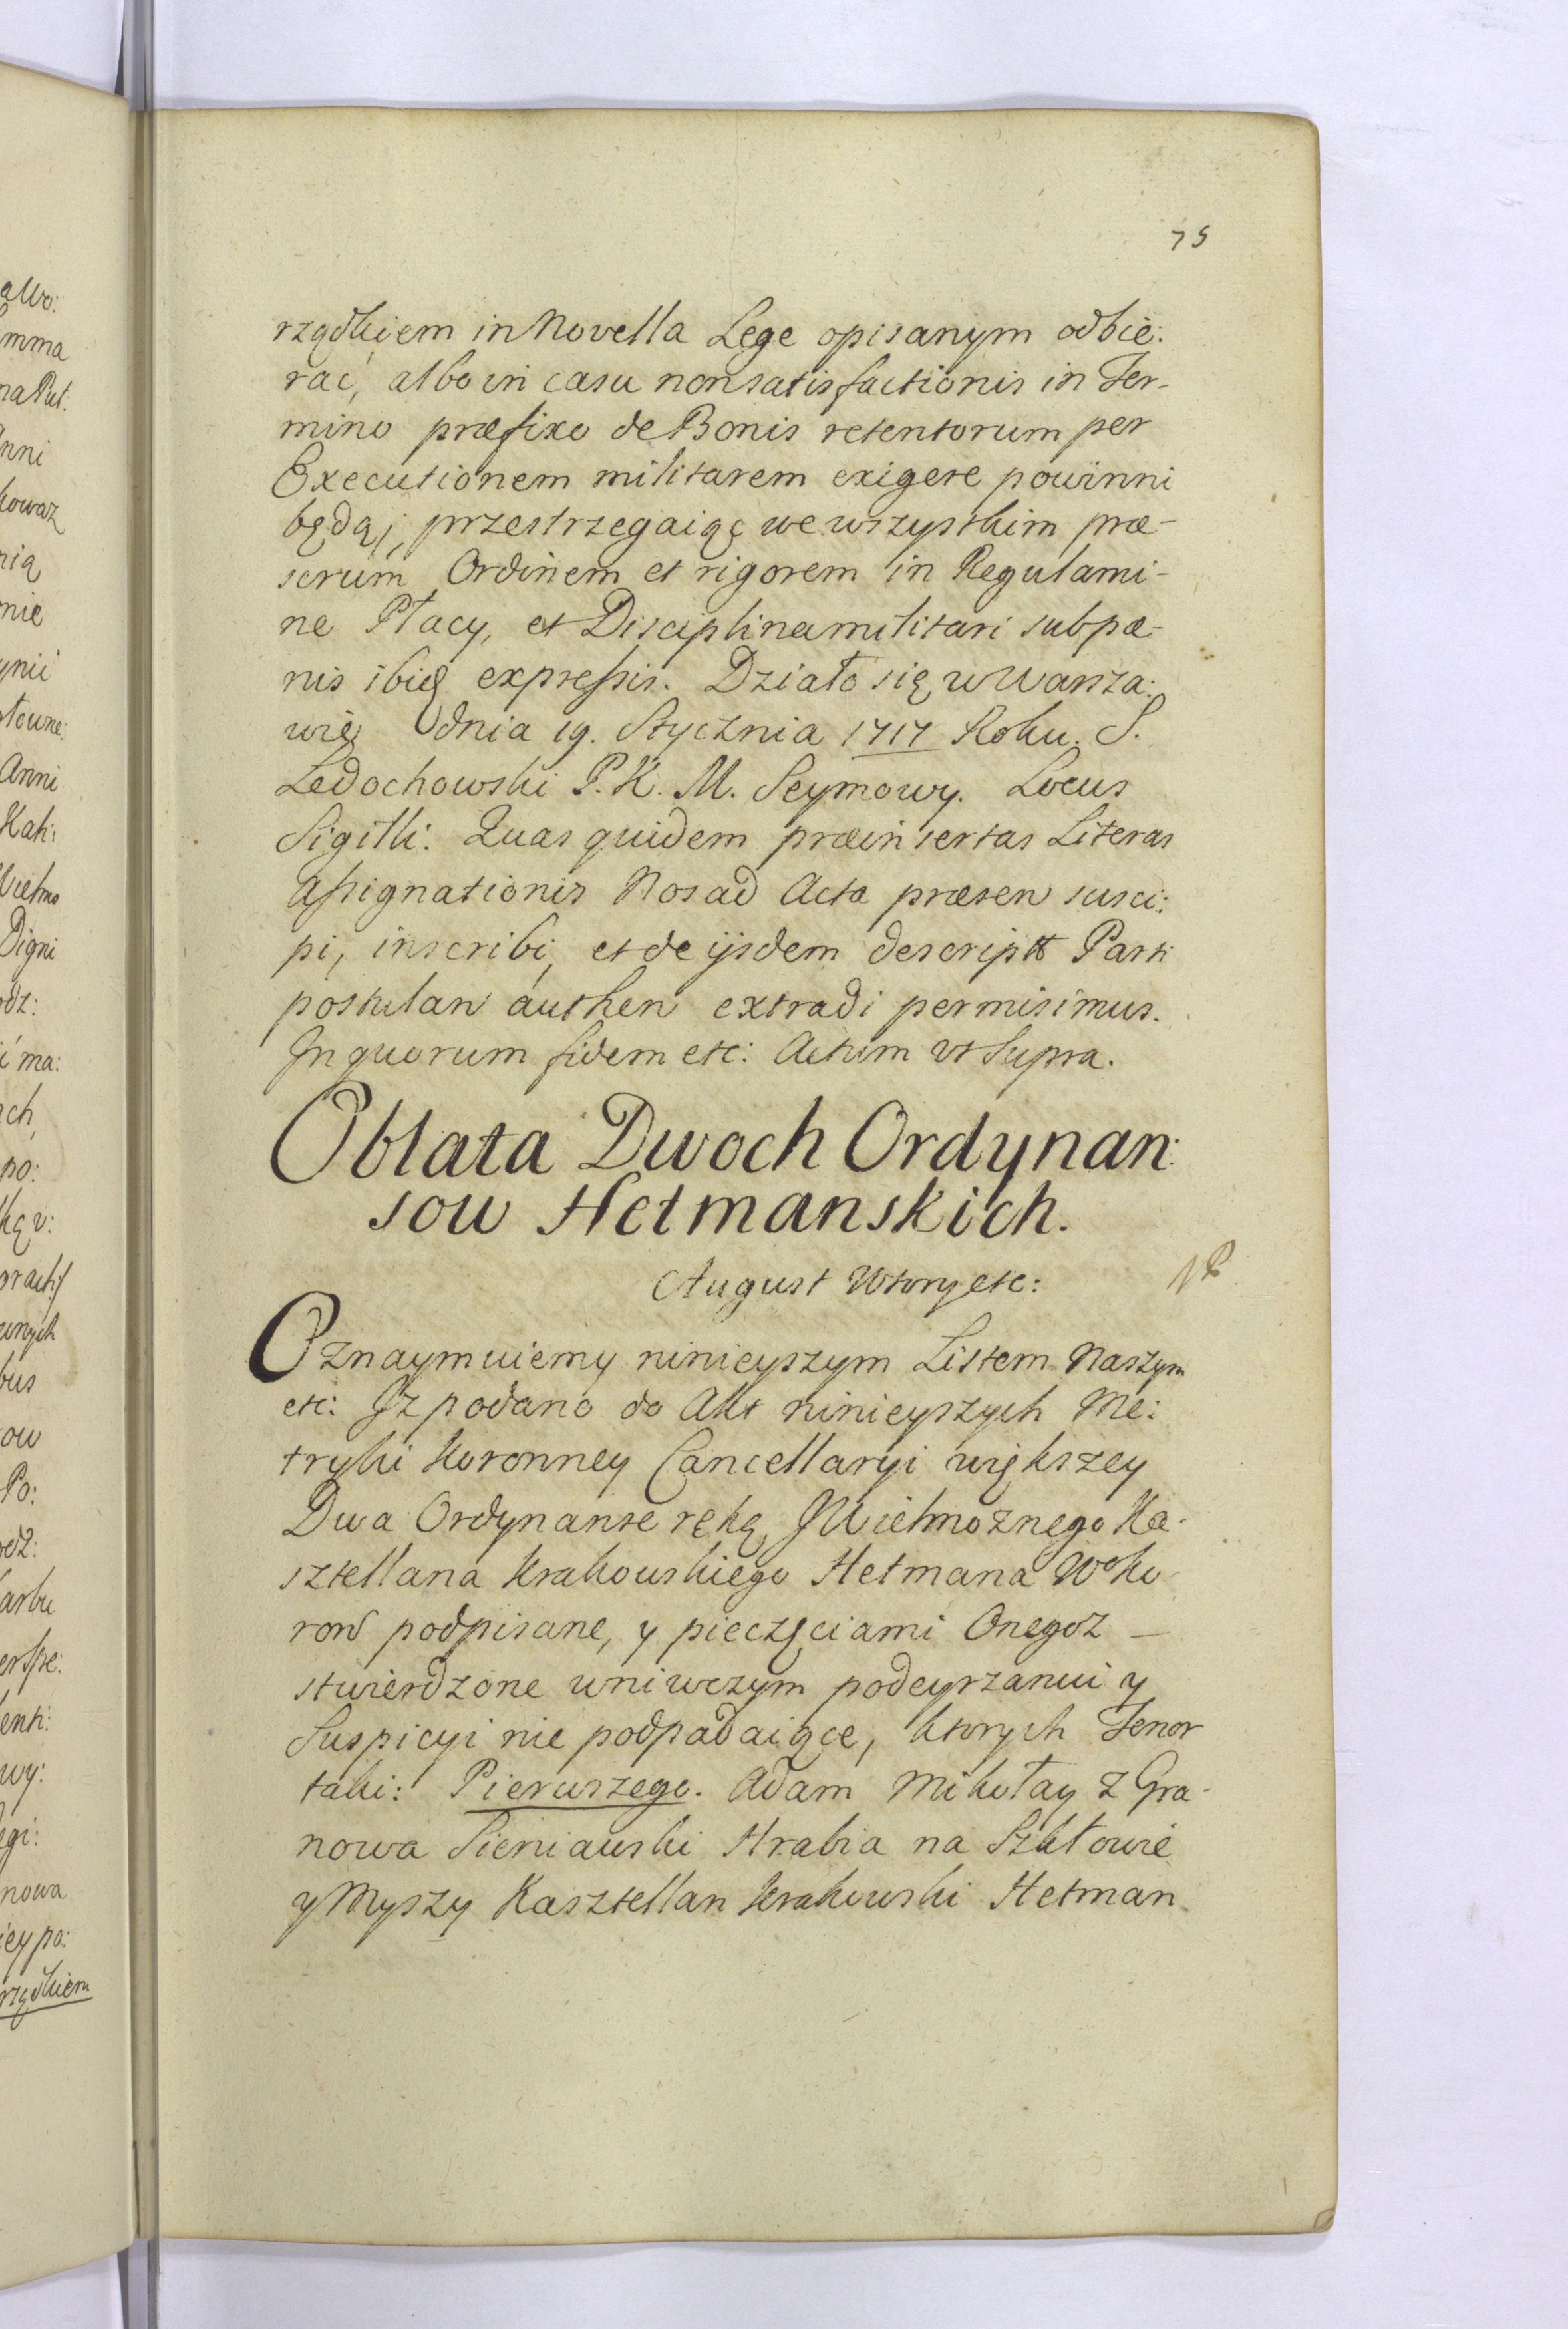 75
rządkiem in Novella Lege opisanym odbie:
rać, albo in casu non satisfactionis in Ter-
mino præfixo de Bonis retentorum per
Executionem militarem exigere powinni
będą; przestrzegaiąc we wszystkim præ-
serūm Ordinem et rigorem in Regulami-
ne Płacy, et Disciplina militari sub pæ-
nis ibią expressis. Działo się w Warsza:
wie dnia 19. Stycznia 1717 Roku. S.
Ledochowski P. K. M. Seymowy. Locus
Sigilli: Quas quidem præinsertas Literas
Assignationis Nos ad Acta præsen susci:
pi, inscribi, et de ijsdem descriptt Parti
postulan authen extradi permisimus.
In quorum fidem etc: Actum ut Supra.
Oblata Dwoch Ordynan:
sow Hetmanskich.
August Wtory etc:
Oznaymuiemy ninieyszym Listem Naszym
etc: Iz podano do Akt ninieyszych Me:
tryki Koronney Cancellaryi większey
Dwa Ordynanse ręką JWielmoznego Ka-
sztellana Krakowskiego Hetmana Wo Ko-
ron podpisane, y pieczęciami Onegoz —
stwierdzone w niwczym podeyrzaniu y
Suspicyi nie podpadaiące, ktorych Tenor
taki: Pierwszego. Adam Mikołay z Gra-
nowa Sieniawski Hrabia na Szkłowie
y Myszy Kasztellan Krakowski Hetman
rządkiem